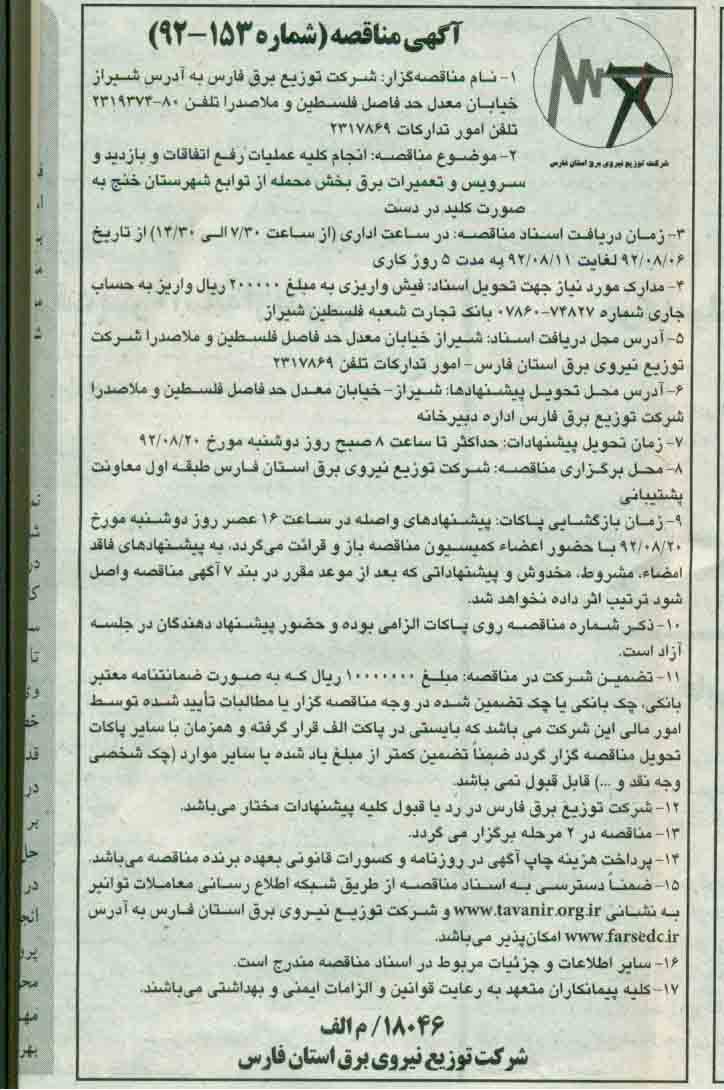 آگهی مناقصه (شماره ۱۵۳-۹۲)
شرکت توزیع نیروی برق استان فارس
۱- نام مناقصه‌گزار: شرکت توزیع برق فارس به آدرس شیراز
خیابان معدل حد فاصل فلسطین و ملاصدرا تلفن ۸۰-۲۳۱۹۳۷۴
تلفن امور تدارکات ۲۳۱۷۸۶۹
۲- موضوع مناقصه: انجام کلیه عملیات رفع اتفاقات و بازدید و
سرویس و تعمیرات برق بخش محمله از توابع شهرستان خنج به
صورت کلید در دست
۳- زمان دریافت اسناد مناقصه: در ساعت اداری (از ساعت ۷/۳۰ الی ۱۴/۳۰) از تاریخ
۹۲/۰۸/۰۶ لغایت ۹۲/۰۸/۱۱ به مدت ۵ روز کاری
۴- مدارک مورد نیاز جهت تحویل اسناد: فیش واریزی به مبلغ ۲۰۰۰۰۰ ریال واریز به حساب
جاری شماره ۷۴۸۲۷-۰۷۸۶۰ بانک تجارت شعبه فلسطین شیراز
۵- آدرس محل دریافت اسناد: شیراز خیابان معدل حد فاصل فلسطین و ملاصدرا شرکت
توزیع نیروی برق استان فارس- امور تدارکات تلفن ۲۳۱۷۸۶۹
۶- آدرس محل تحویل پیشنهادها: شیراز- خیابان معدل حد فاصل فلسطین و ملاصدرا
شرکت توزیع برق فارس اداره دبیرخانه
۷- زمان تحویل پیشنهادات: حداکثر تا ساعت ۸ صبح روز دوشنبه مورخ ۹۲/۰۸/۲۰
۸- محل برگزاری مناقصه: شرکت توزیع نیروی برق استان فارس طبقه اول معاونت
پشتیبانی
۹- زمان بازگشایی پاکات: پیشنهادهای واصله در ساعت ۱۶ عصر روز دوشنبه مورخ
۹۲/۰۸/۲۰ با حضور اعضاء کمیسیون مناقصه باز و قرائت می‌گردد، به پیشنهادهای فاقد
امضاء، مشروط، مخدوش و پیشنهاداتی که بعد از موعد مقرر در بند ۷ آگهی مناقصه واصل
شود ترتیب اثر داده نخواهد شد.
۱۰- ذکر شماره مناقصه روی پاکات الزامی بوده و حضور پیشنهاد دهندگان در جلسه
آزاد است.
۱۱- تضمین شرکت در مناقصه: مبلغ ۱۰۰۰۰۰۰۰ ریال که به صورت ضمانتنامه معتبر
بانکی، چک بانکی یا چک تضمین شده در وجه مناقصه گزار یا مطالبات تأیید شده توسط
امور مالی این شرکت می باشد که بایستی در پاکت الف قرار گرفته و همزمان با سایر پاکات
تحویل مناقصه گزار گردد ضمناً تضمین کمتر از مبلغ یاد شده یا سایر موارد (چک شخصی
وجه نقد و ...) قابل قبول نمی باشد.
۱۲- شرکت توزیع برق فارس در رد یا قبول کلیه پیشنهادات مختار می‌باشد.
۱۳- مناقصه در ۲ مرحله برگزار می گردد.
۱۴- پرداخت هزینه چاپ آگهی در روزنامه و کسورات قانونی بعهده برنده مناقصه می‌باشد.
۱۵- ضمناً دسترسی به اسناد مناقصه از طریق شبکه اطلاع رسانی معاملات توانیر
به نشانی www.tavanir.org.ir و شرکت توزیع نیروی برق استان فارس به آدرس
www.farsedc.ir امکان‌پذیر می‌باشد.
۱۶- سایر اطلاعات و جزئیات مربوط در اسناد مناقصه مندرج است.
۱۷- کلیه پیمانکاران متعهد به رعایت قوانین و الزامات ایمنی و بهداشتی می‌باشند.
۱۸۰۴۶/ م الف
شرکت توزیع نیروی برق استان فارس